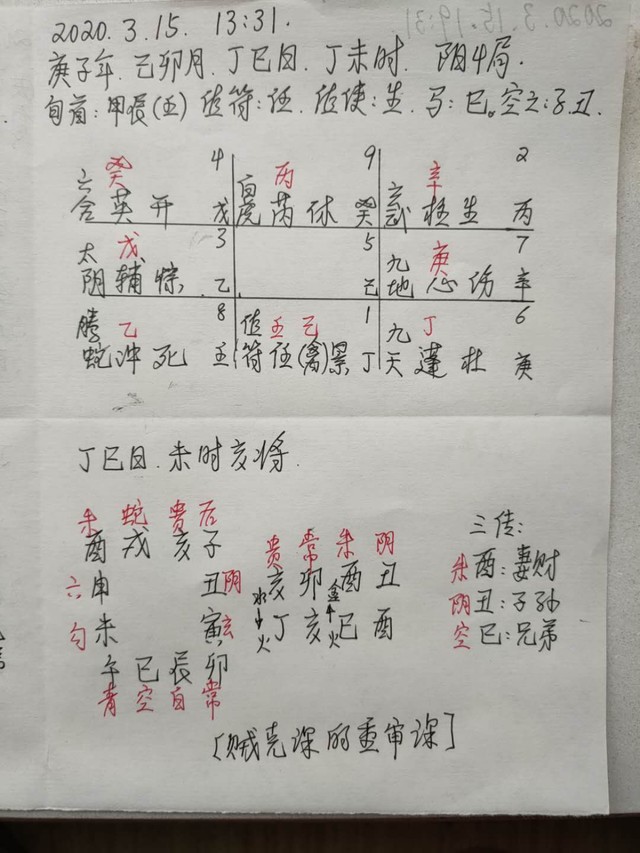 2020.3.15. 13:31.
庚子年.己卯月.丁巳日.丁未时. 阳4局.
旬首:甲辰(壬) 值符:任. 值使:生. 马:巳。空亡:子.丑.
癸 4 丙 9 辛 2
六合 英 开 戊 白虎 芮 休 癸 玄武 柱 生 丙
戊 3 5 庚 7
太阴 辅 惊 乙 己 九地 心 伤 辛
乙 8 壬 己 1 丁 6
腾蛇 冲 死 壬 值符 任(禽) 景 丁 九天 蓬 杜 庚
丁巳日.未时亥将.
朱 蛇 贵 后
酉 戌 亥 子
六 申 丑 阴
勾 未 寅 玄
午 巳 辰 卯
青 空 白 常
贵 常 朱 阴
亥 卯 酉 丑
水 火 金 火
丁 亥 巳 酉
三传:
朱 酉:妻财
阴 丑:子孙
空 巳:兄弟
[贼克课的重审课]